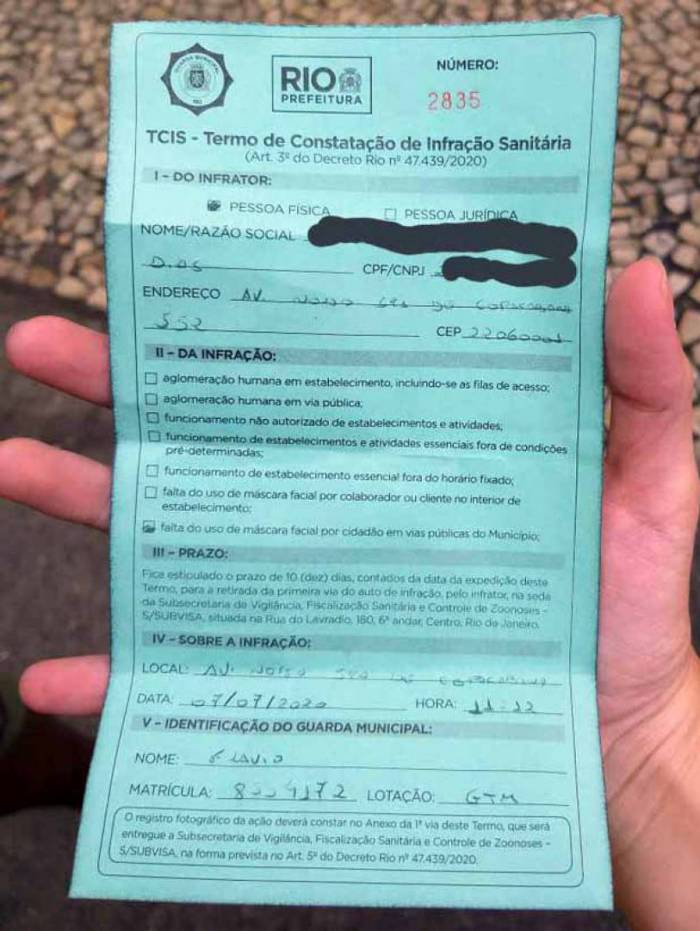 GUARDA MUNICIPAL
RIO
RIO
PREFEITURA
NÚMERO:
2835
TCIS - Termo de Constatação de Infração Sanitária
(Art. 3º do Decreto Rio nº 47.439/2020)
I - DO INFRATOR:
PESSOA FÍSICA PESSOA JURÍDICA
NOME/RAZÃO SOCIAL
DIAS CPF/CNPJ
ENDEREÇO AV. NOSSA SRA DE COPACABANA
552 CEP 22060001
II - DA INFRAÇÃO:
aglomeração humana em estabelecimento, incluindo-se as filas de acesso;
aglomeração humana em via pública;
funcionamento não autorizado de estabelecimentos e atividades;
funcionamento de estabelecimentos e atividades essenciais fora de condições
pré-determinadas;
funcionamento de estabelecimento essencial fora do horário fixado;
falta do uso de máscara facial por colaborador ou cliente no interior de
estabelecimento;
falta do uso de máscara facial por cidadão em vias públicas do Município;
III - PRAZO:
Fica estipulado o prazo de 10 (dez) dias, contados da data da expedição deste
Termo, para a retirada da primeira via do auto de infração, pelo infrator, na sede
da Subsecretaria de Vigilância, Fiscalização Sanitária e Controle de Zoonoses -
S/SUBVISA, situada na Rua do Lavradio, 180, 6º andar, Centro, Rio de Janeiro.
IV - SOBRE A INFRAÇÃO:
LOCAL: AV. NOSSA SRA DE COPACABANA
DATA: 07/07/2020 HORA: 11:12
V - IDENTIFICAÇÃO DO GUARDA MUNICIPAL:
NOME: FLAVIO
MATRÍCULA: LOTAÇÃO: GTM
O registro fotográfico da ação deverá constar no Anexo da 1ª via deste Termo, que será
entregue a Subsecretaria de Vigilância, Fiscalização Sanitária e Controle de Zoonoses -
S/SUBVISA, na forma prevista no Art. 5º do Decreto Rio nº 47.439/2020.